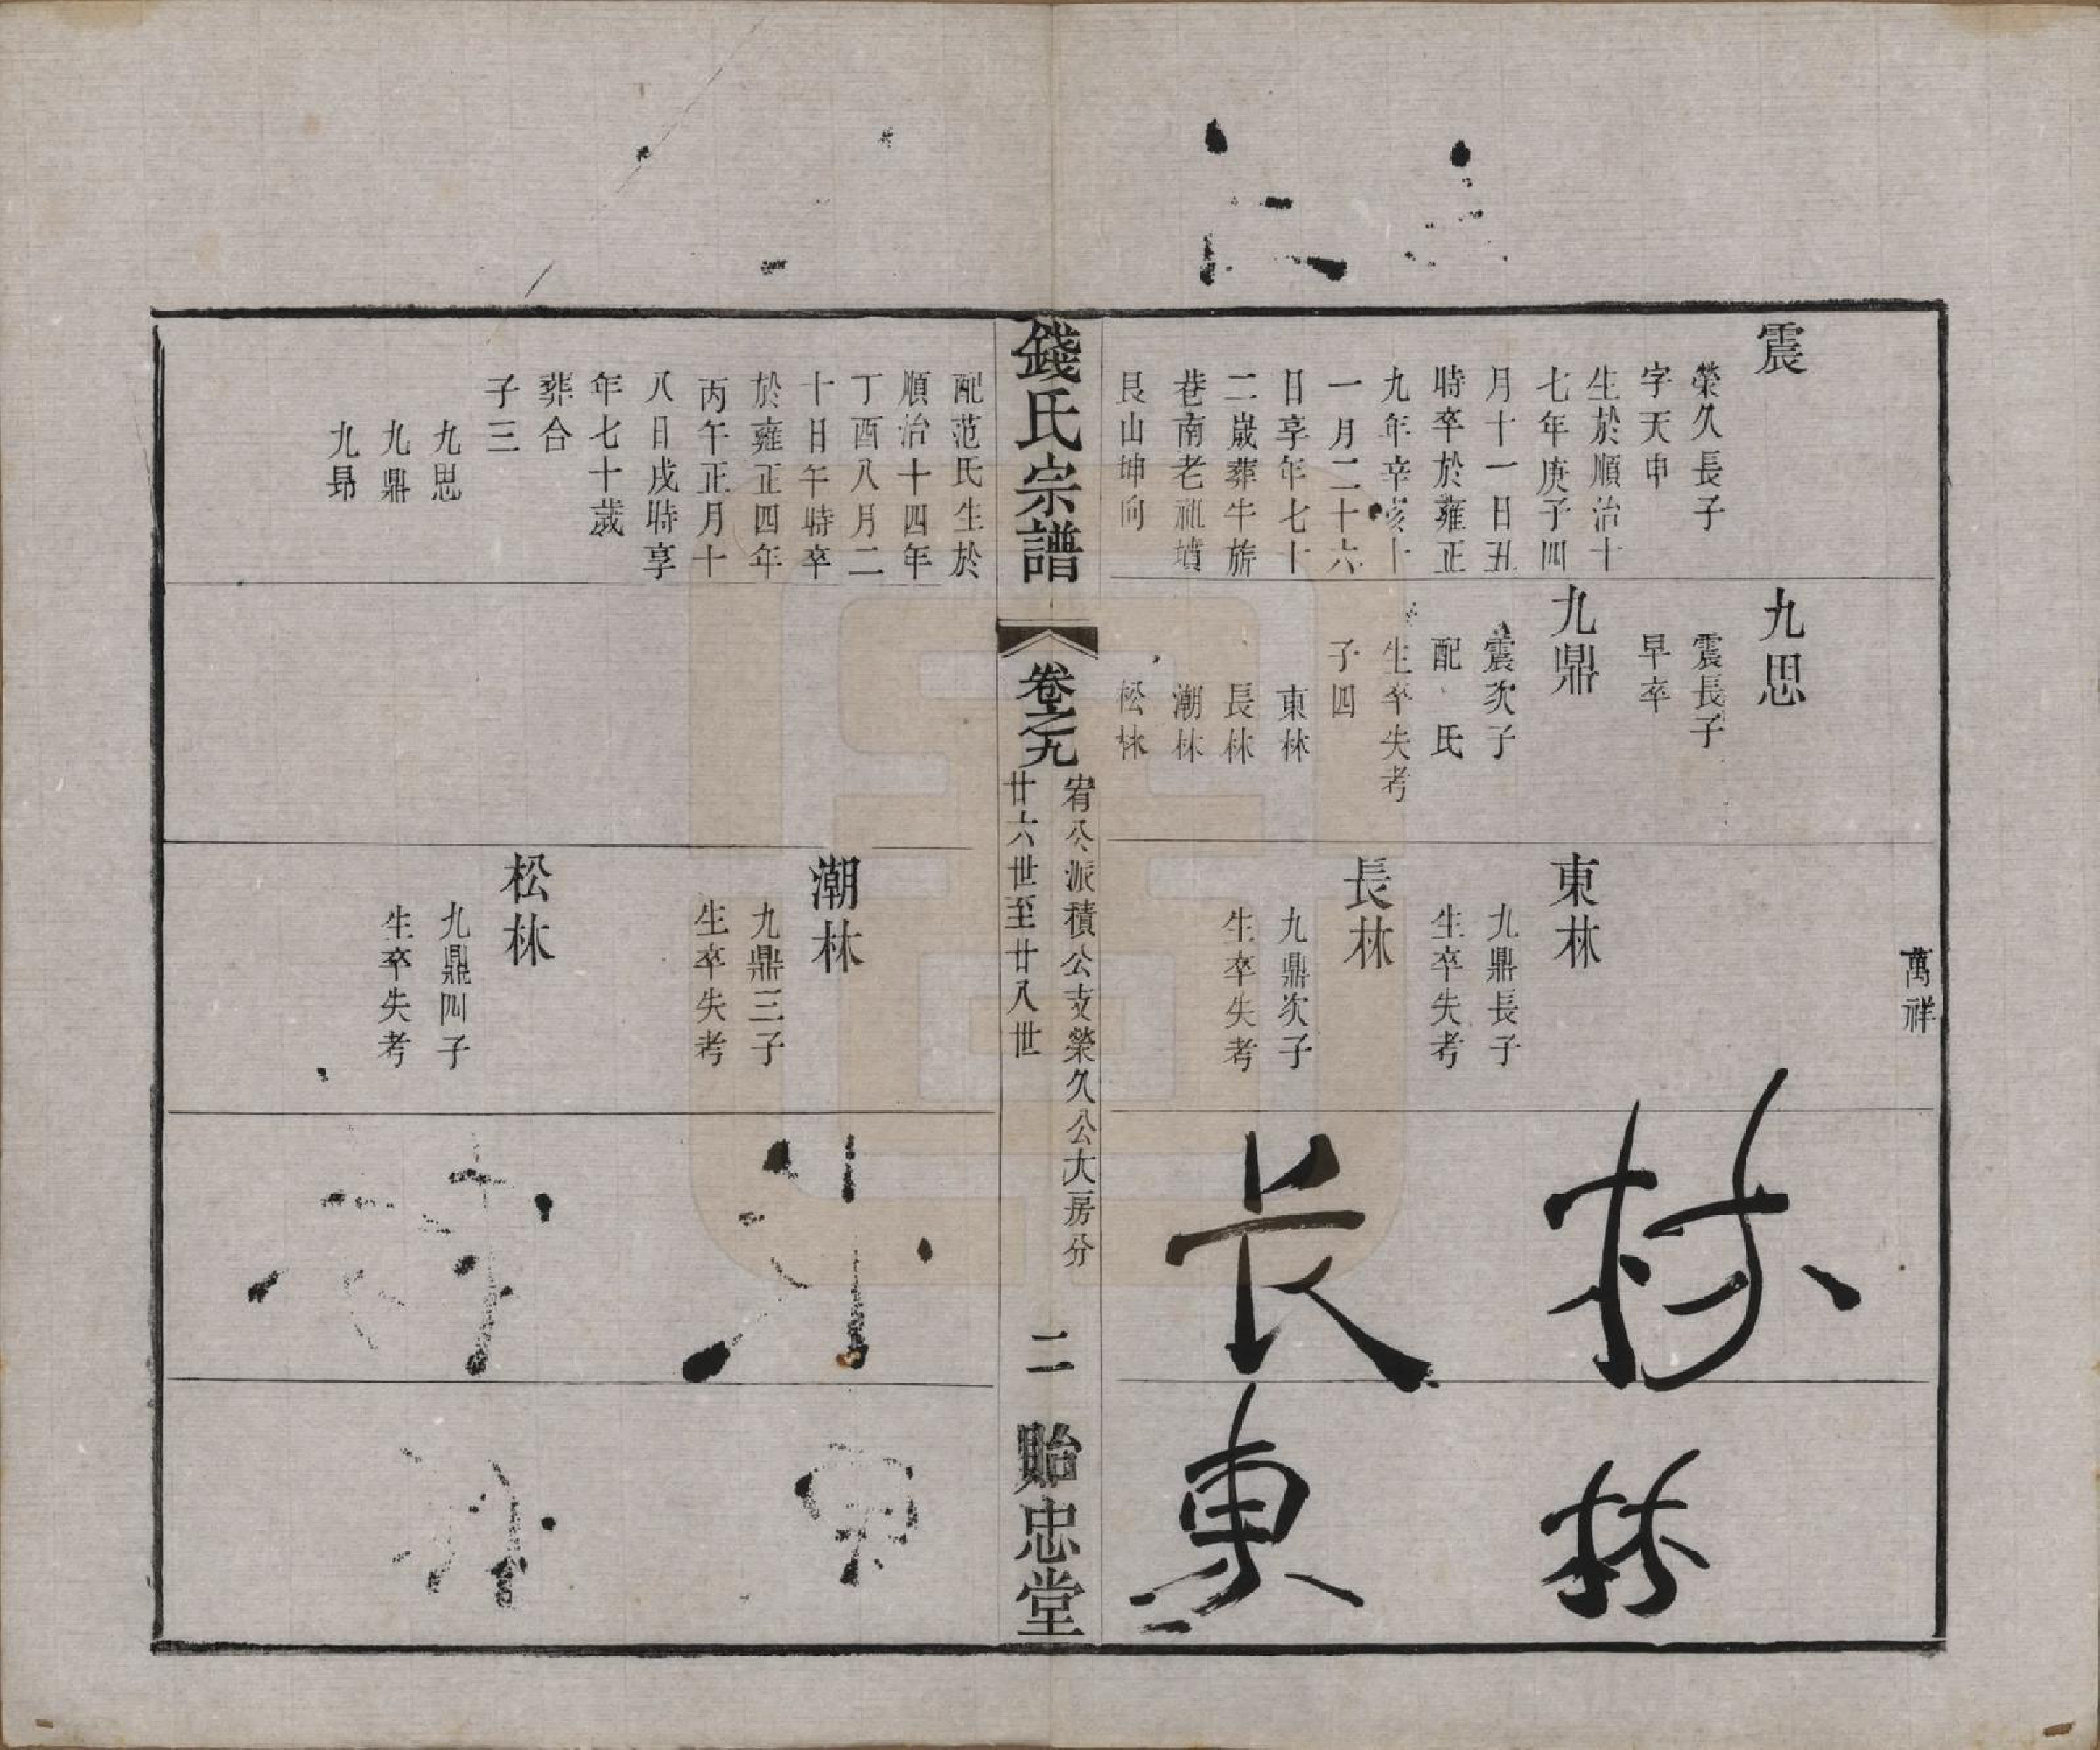 震
榮久長子
字天申
生於順治十
七年庚子四
月十一日丑
時卒於雍正
九年辛亥十
一月二十六
日享年七十
二歲葬牛旂
巷南老祖墳
艮山坤向
九思
震長子
早卒
九鼎
震次子
配 氏
生卒失考
子四
東林
長林
潮林
松林
萬祥
東林
九鼎長子
生卒失考
長林
九鼎次子
生卒失考
林
长
林
東
錢氏宗譜
卷之九
宥公派積公支榮久公大房分
廿六世至廿八世
二
貽忠堂
配范氏生於
順治十四年
丁酉八月二
十日午時卒
於雍正四年
丙午正月十
八日戌時享
年七十歲
葬合
子三
九思
九鼎
九昂
潮林
九鼎三子
生卒失考
松林
九鼎四子
生卒失考